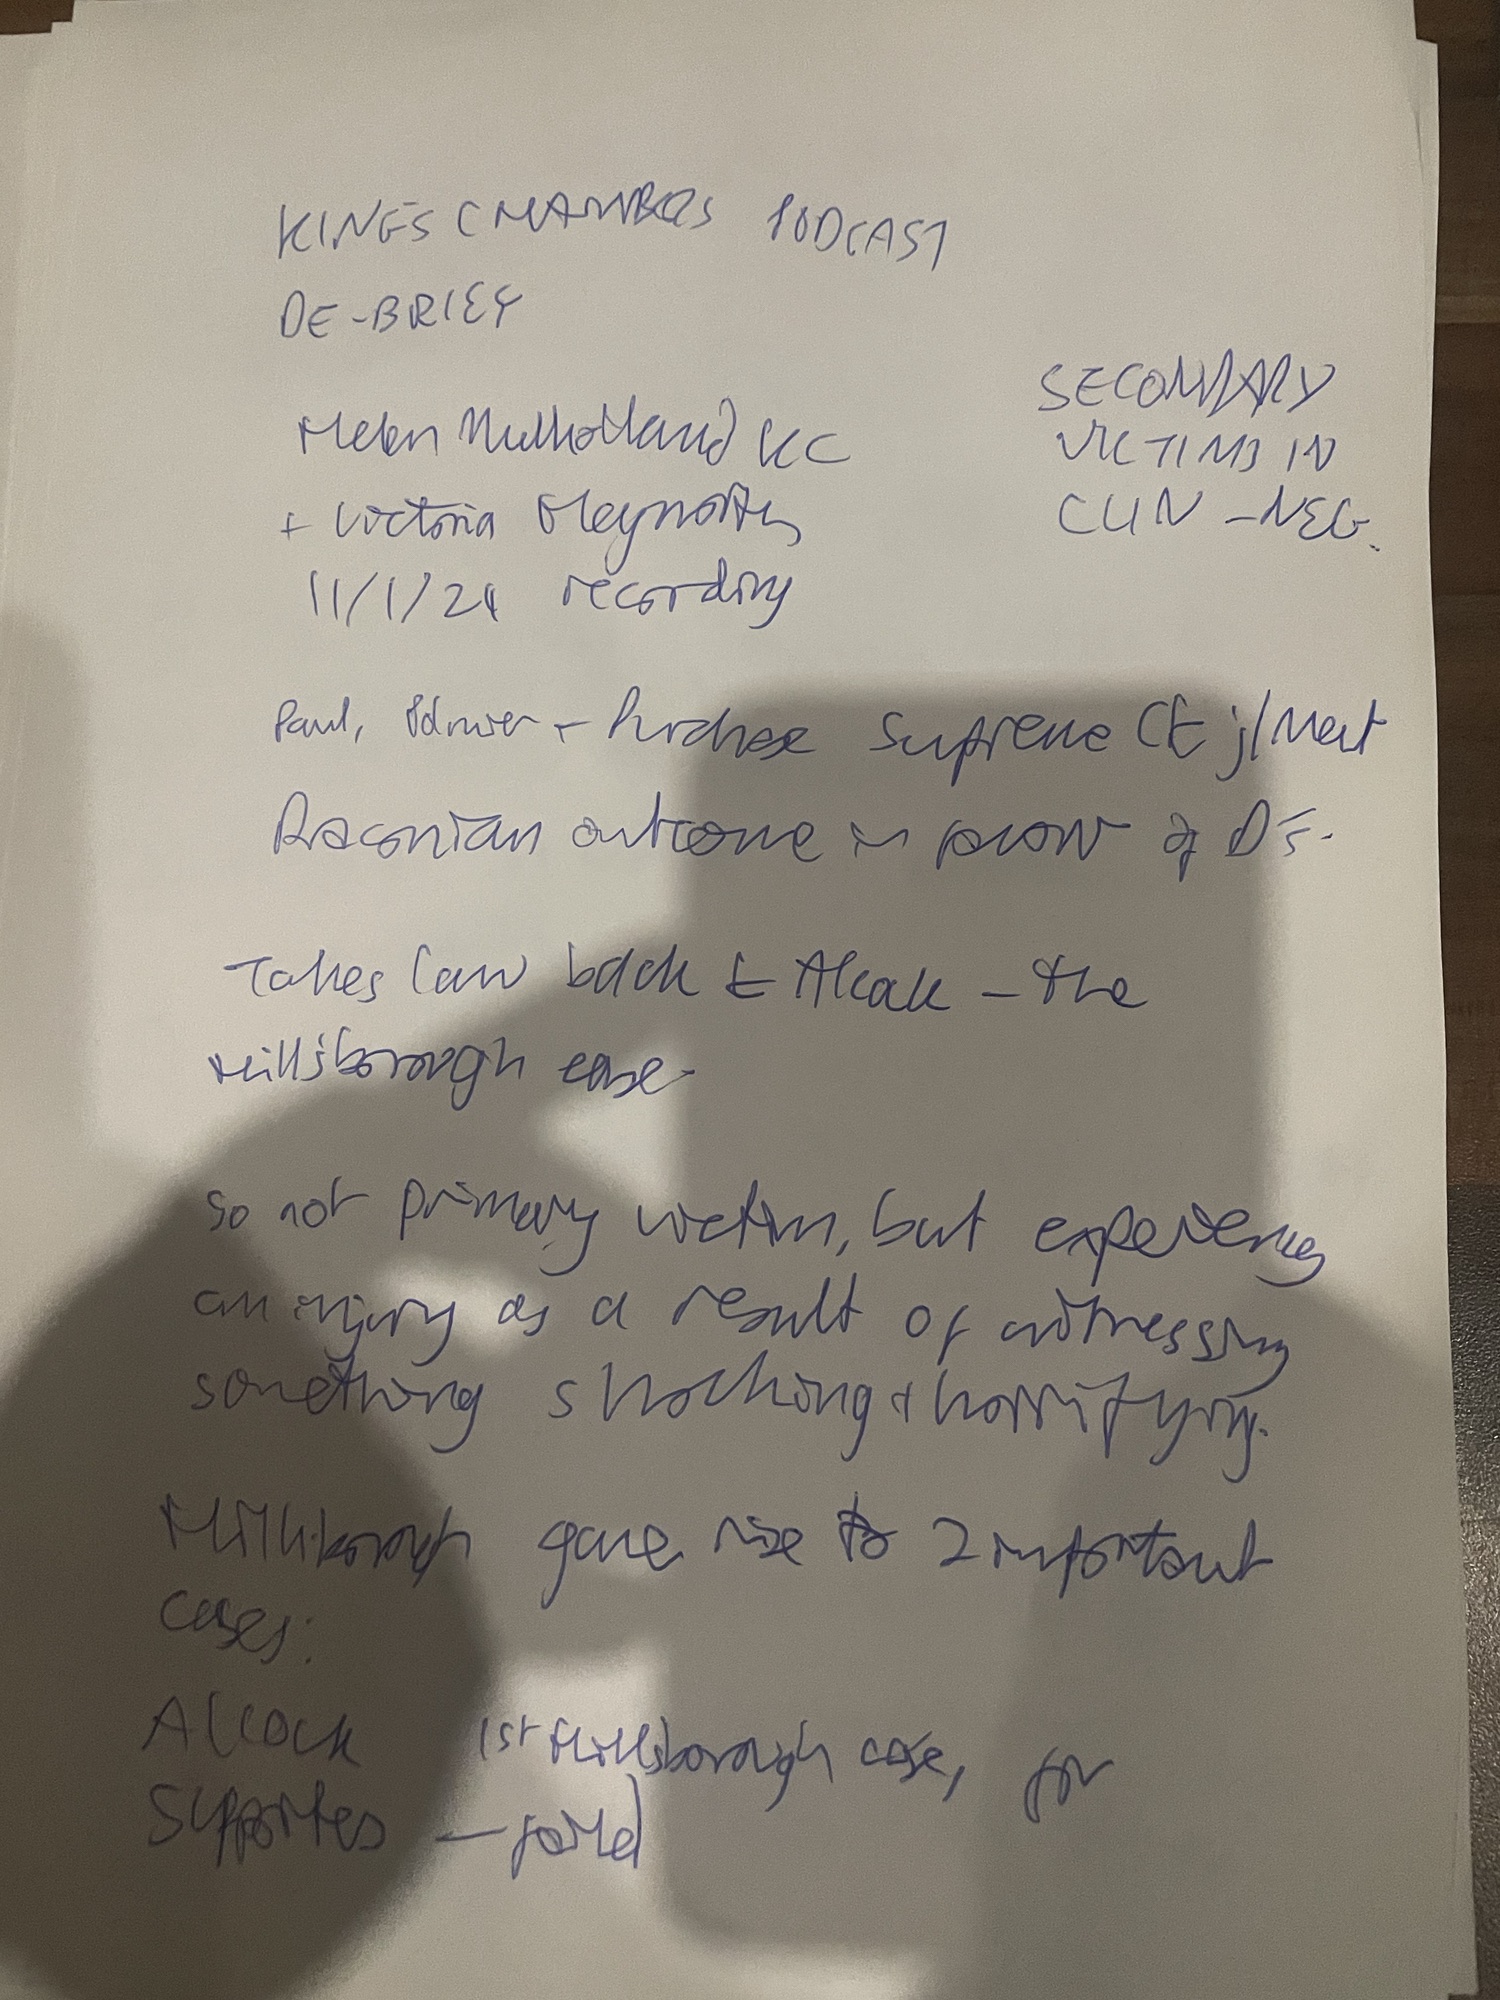 KINGS CHAMBERS PODCAST
DE-BRIEF
SECONDARY
VICTIMS IN
CLIN-NEG.
Helen Mulholland KC
+ Victoria Heynorthy
11/1/24 recording
Paul, Polmear + Purchase Supreme Ct j/ment
Draconian outcome in favour of D's.
Takes law back to Alcock - the
Hillsborough case.
So not primary victim, but experiencing
an injury as a result of witnessing
something shocking + horrifying.
Hillsborough gave rise to 2 important
cases:
Alcock 1st Hillsborough case, for
Supporters - failed